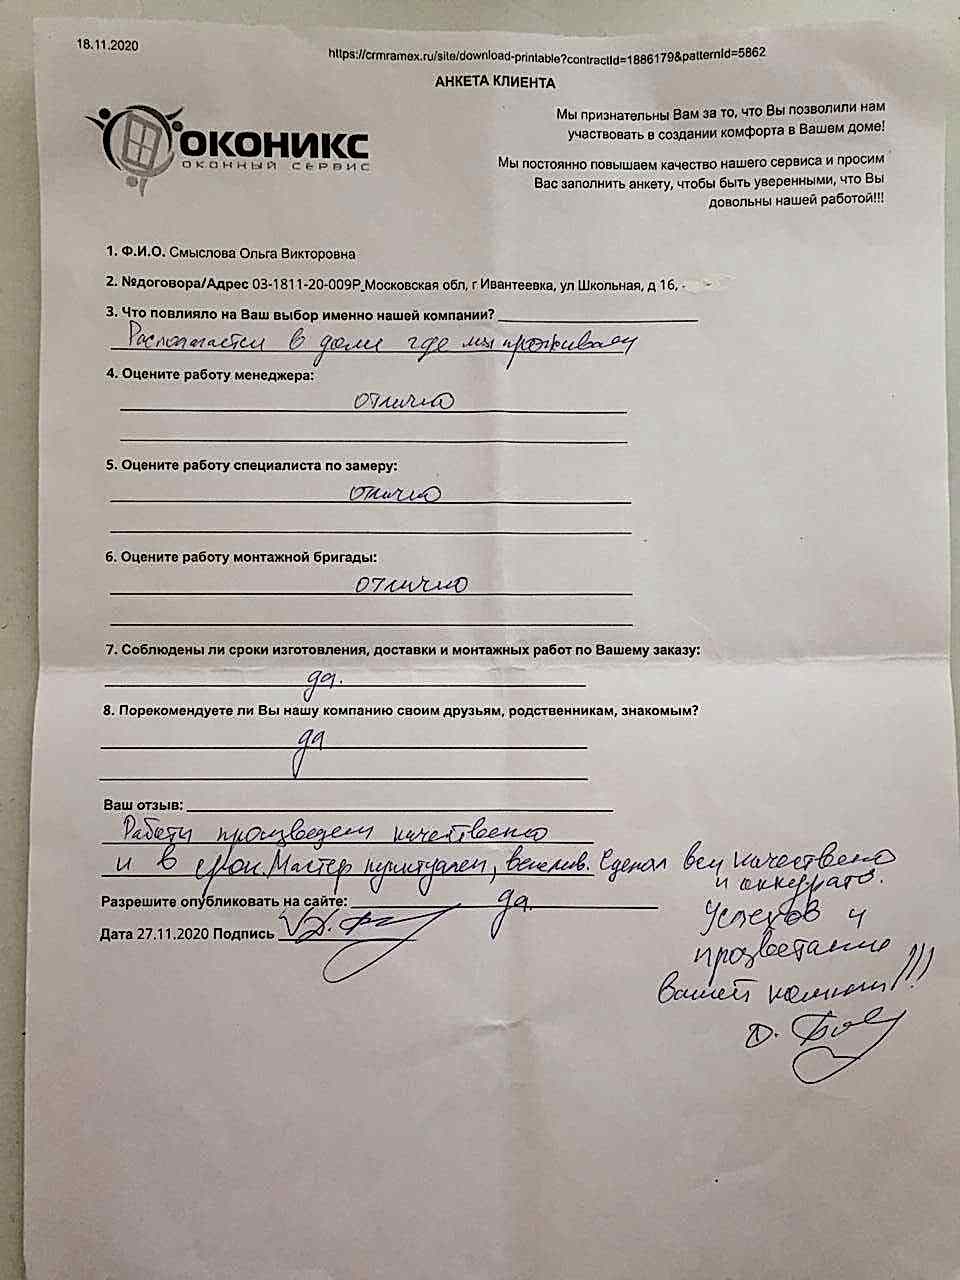 18.11.2020
https://crmramex.ru/site/download-printable?contractId=1886179&patternId=5862
АНКЕТА КЛИЕНТА
ОКОНИКС
ОКОННЫЙ СЕРВИС
Мы признательны Вам за то, что Вы позволили нам
участвовать в создании комфорта в Вашем доме!
Мы постоянно повышаем качество нашего сервиса и просим
Вас заполнить анкету, чтобы быть уверенными, что Вы
довольны нашей работой!!!
1. Ф.И.О. Смыслова Ольга Викторовна
2. №договора/Адрес 03-1811-20-009Р_Московская обл, г Ивантеевка, ул Школьная, д 16,
3. Что повлияло на Ваш выбор именно нашей компании?
Располагается в доме где мы проживаем
4. Оцените работу менеджера:
отлично
5. Оцените работу специалиста по замеру:
отлично
6. Оцените работу монтажной бригады:
отлично
7. Соблюдены ли сроки изготовления, доставки и монтажных работ по Вашему заказу:
да.
8. Порекомендуете ли Вы нашу компанию своим друзьям, родственникам, знакомым?
да
Ваш отзыв:
Работы произведены качественно
и в срок. Мастер пунктуален, вежлив. Сделал всё качествено
и аккуратно.
Разрешите опубликовать на сайте: да.
Дата 27.11.2020 Подпись
Успехов и
процветание
вашей компании!!!